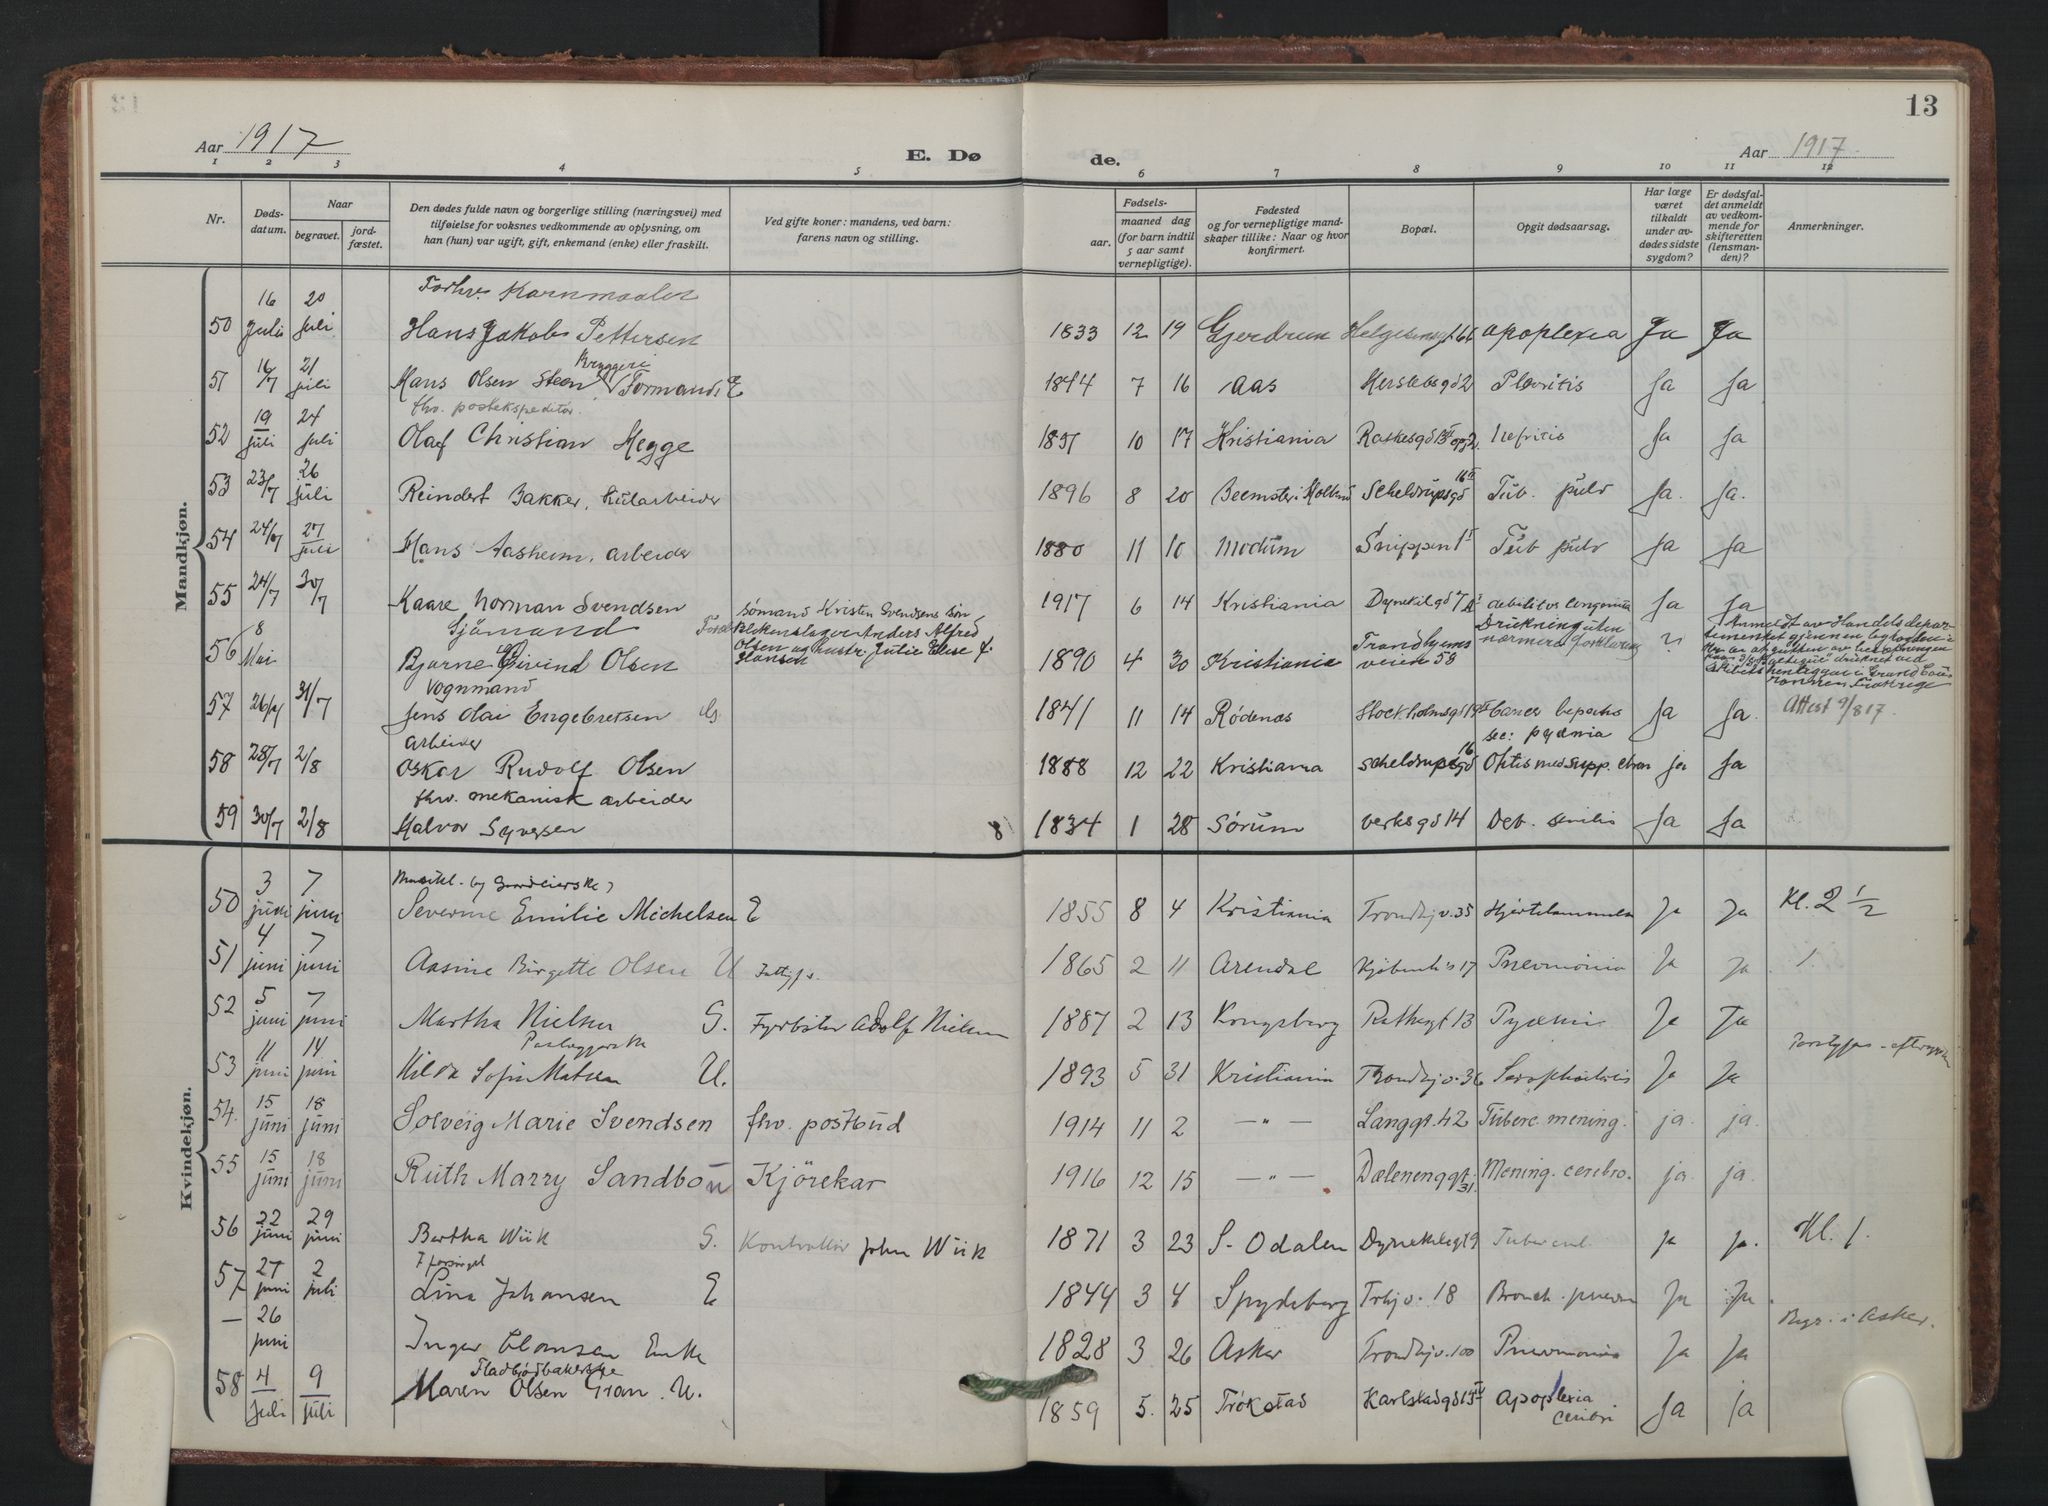 13
Aar 1917
E. Dø
de.
Aar 1917
1 2 3 4 5 6 7 8 9 10 11 12
Nr.
Døds-
datum.
Naar
begravet.
jord-
fæstet.
Den dødes fulde navn og borgerlige stilling (næringsvei) med
tilføielse for voksnes vedkommende av oplysning, om
han (hun) var ugift, gift, enkemand (enke) eller fraskilt.
Ved gifte koner: mandens, ved barn:
farens navn og stilling.
Fødsels-
aar.
maaned dag
(for barn indtil
5 aar samt
vernepligtige).
Fødested
og for vernepligtige mand-
skaper tillike: Naar og hvor
konfirmert.
Bopæl.
Opgit dødsaarsag.
Har læge
været
tilkaldt
under av-
dødes sidste
sygdom?
Er dødsfal-
det anmeldt
av vedkom-
mende for
skifteretten
(lensman-
den)?
Anmerkninger.
Mandkjøn.
50 16 Juli 20 juli Hans Jakob Pettersen 1833 12 19 Gjerdrum apoplexia Ja Ja
51 16/7 21 juli Hans Olsen Steen, Bryggeri Formand E 1844 7 16 Aas Herslebsgd 2 Plevritis Ja Ja
fhv. postekspeditør.
52 19 juli 24 juli Olaf Christian Hegge 1851 10 17 Kristiania Nefritis Ja Ja
53 23/7 26 juli Reindert Bakker, 1896 8 20 Beemster i Holland Scheldrupsgd 16 II Tub. pulv Ja. Ja.
54 24/7 27 juli Hans Aasheim, arbeider 1880 11 10 Modum Snippen 1 II Tub pulv Ja Ja
55 24/7 30/7 Kaare Norman Svendsen Sømand Kristen Svendsens søn 1917 6 14 Kristiania Ja Ja
Sjømand
56 8 Mai Bjarne Eivind Olsen Blikkenslager Anders Alfred
Olsen og hustru Julie Elise f.
Hansen 1890 4 30 Kristiania Trondhjems
veien 58 Drukning uten
nærmere forklaring
Anmeldt av Handelsdepar-
tementet
Vognmand
57 26/7 31/7 Jens Olai Engebretsen G. 1841 11 14 Rødenæs Cancer hepatis Ja Ja. Attest 9/8 17.
arbeider
58 28/7 2/8 Oskar Rudolf Olsen 1888 12 22 Kristiania Scheldrupsgd 16 sec: pyæmia
Otitis med supp. chron ja Ja
fhv. mekanisk arbeider
59 30/7 2/8 Halvor Syversen 8 1834 1 28 Sørum Verksgd 14 Deb. senilis Ja Ja
Kvindekjøn.
50 3 juni 7 juni Severine Emilie Michelsen E 1855 8 4 Kristiania Trondhj v. 35 Hjertelammelse Ja Ja Kl. 2 1/2
51 4 juni 7 juni Aasine Birgitte Olsen U 1865 2 11 Arendal Pneumonia Ja Ja 1.
52 5 juni 7 juni Martha Nielsen G. Fyrbøter Adolf Nielsen 1887 2 13 Kongsberg Rathkesgt 13 Pyæmie Ja Ja
53 11 juni 14 juni Hilda Sofie Matsen U. 1893 5 31 Kristiania Trondhj v. 36 Ja Ja
54. 15 juni 18 juni Solveig Marie Svendsen fhv. postbud 1914 11 2 —„— Langgt. 42 Tuberc. mening. ja. ja.
55 15 juni 18 juni Ruth Marry Sandbou Kjørekar 1916 12 15 —„— Dælenenggt. 31. Mening. cerebro. ja. ja.
56 22 juni 29 juni Bertha Wiik G. Kontrollør John Wiik 1871 3 23 S. Odalen Tubercul. ja ja. Kl. 1.
57 27 juni 2 juli Lina Johansen E 1844 3 4 Spydeberg Trhj v. 18 Bronch. pneum Ja Ja.
— 26 juni Inger Thomsen Enke 1828 3 26 Asker Trondhj v. 100 Pneumonia Ja Ja Begr. i Asker.
Fladbrødbakerske
58 4 juli 9 juli Maren Olsen Gran. U. 1859 5. 25 Trøkstad Karlstadgd 15 IV Apoplexia
cerebri Ja Ja